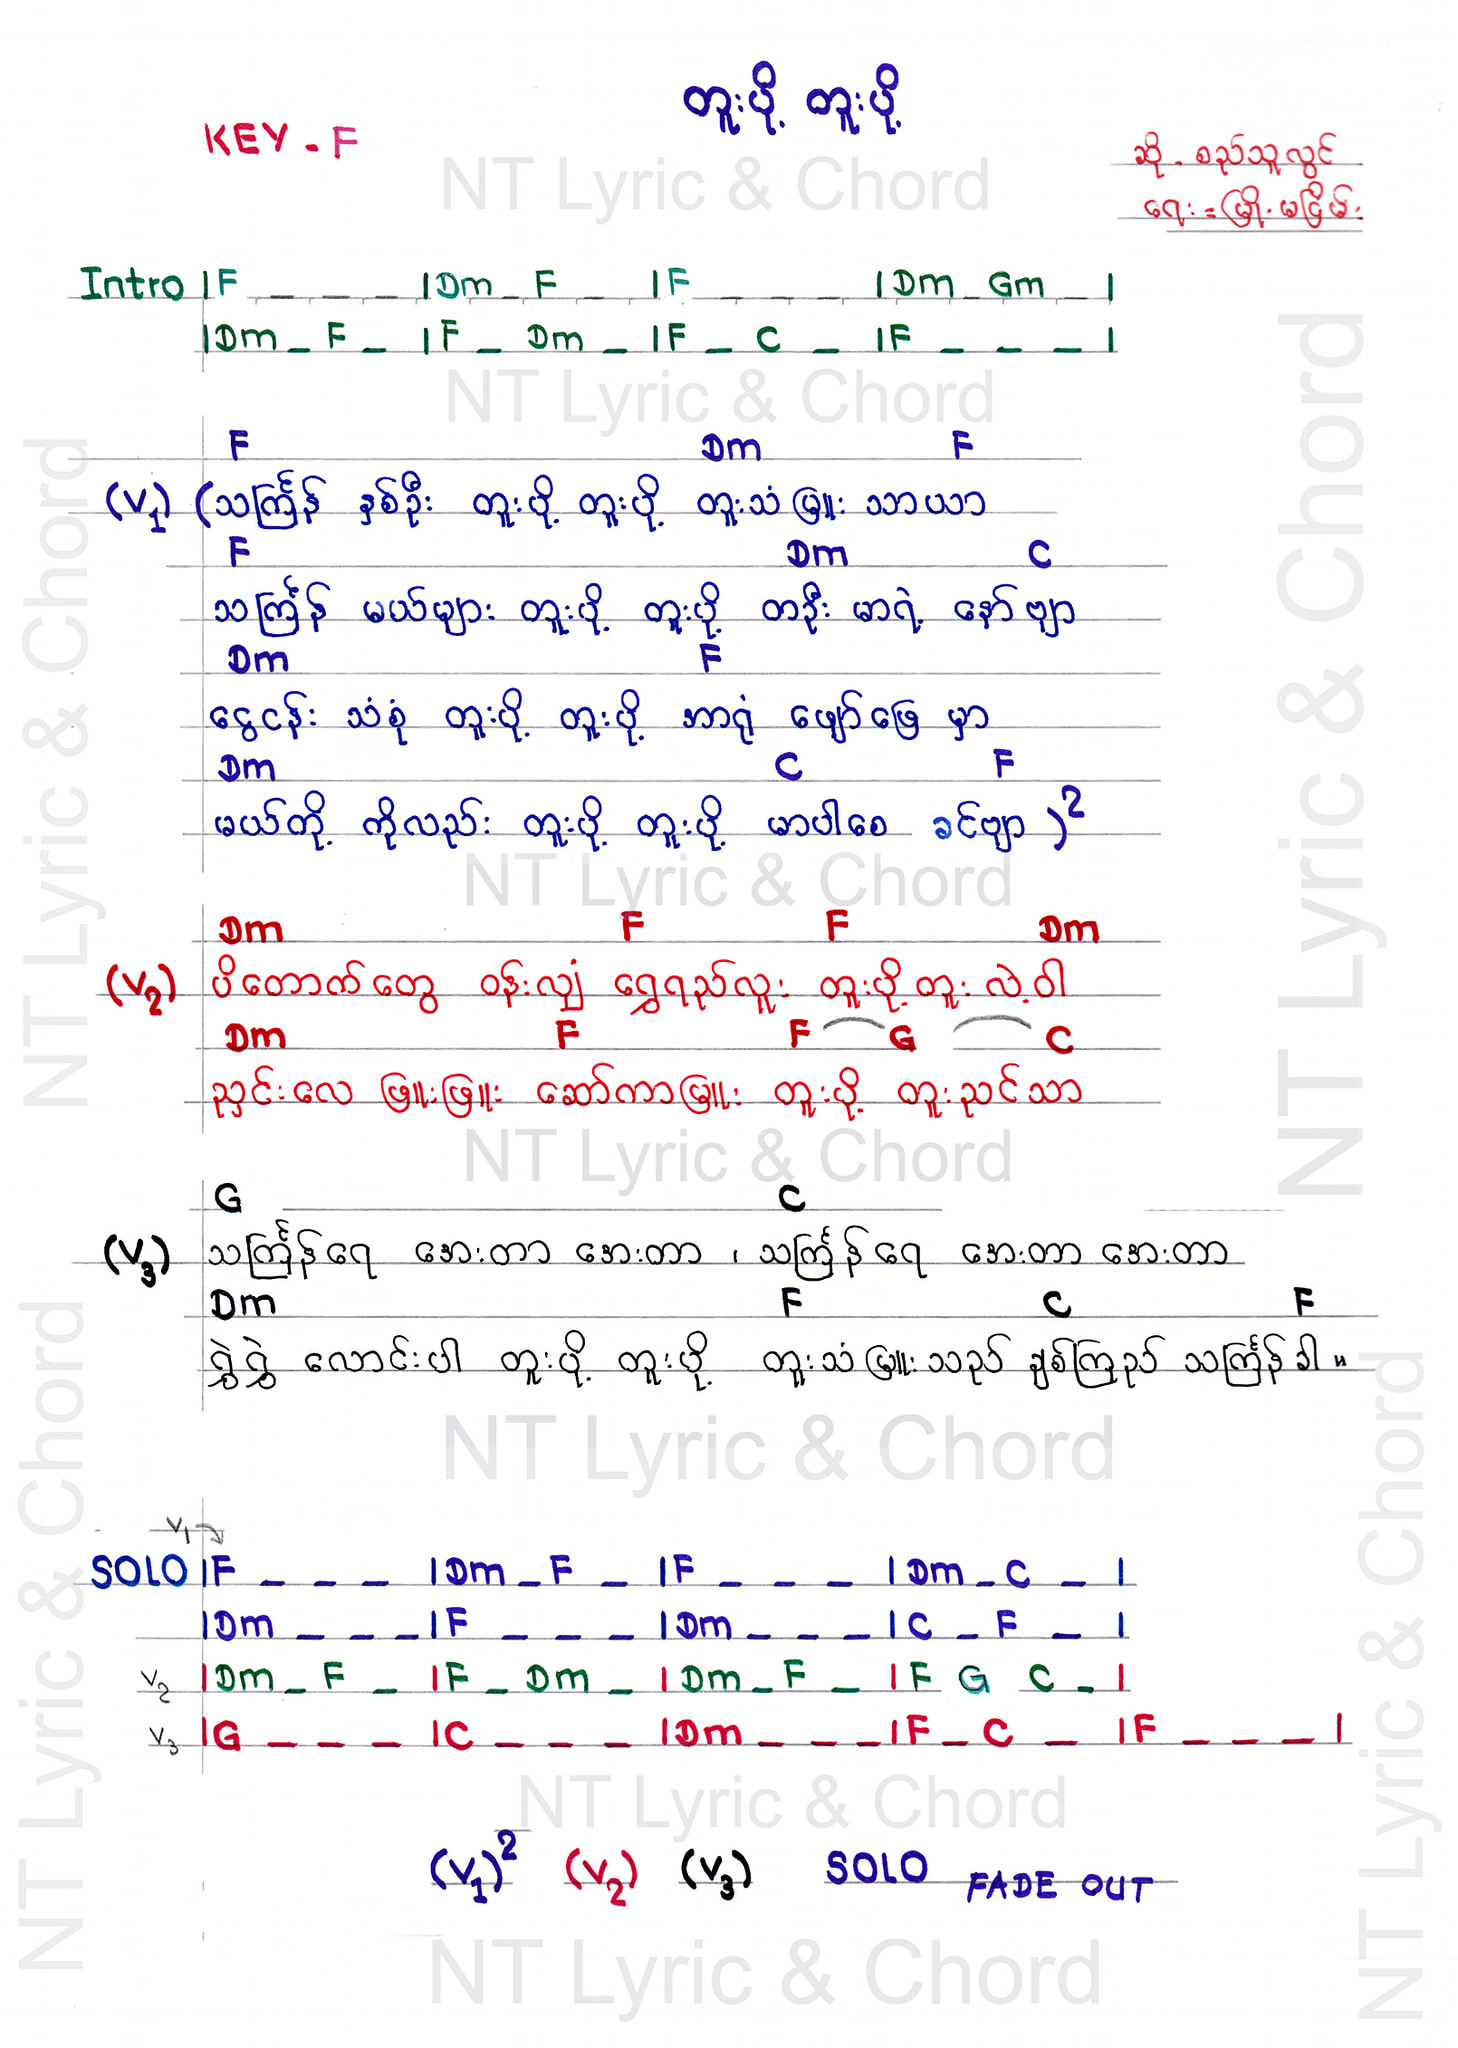 တူးပို့ တူးပို့
KEY - F
ဆို - စည်သူလွင်
ရေး = မြို့မငြိမ်း
NT Lyric & Chord
Intro |F _ _ _ |Dm _ F _ |F _ _ _ |Dm _ Gm _ |
|Dm _ F _ |F _ Dm _ |F _ C _ |F _ _ _ |
NT Lyric & Chord
F Dm F
(V1) (သင်္ကြန် နှစ်ဦး တူးပို့ တူးပို့ တူးသံမြူး သာယာ
F Dm C
သင်္ကြန် မယ်များ တူးပို့ တူးပို့ တဦး မာရဲ့ နော်ဗျာ
Dm F
ငွေငန်း သံစုံ တူးပို့ တူးပို့ အာရုံ ဖျော်ဖြေ မှာ
Dm C F
မယ်ကို့ ကိုလည်း တူးပို့ တူးပို့ မာပါစေ ခင်ဗျာ )2
NT Lyric & Chord
Dm F F Dm
(V2) ပိတောက်တွေ ဝန်းလျှံ ရွှေရည်လူး တူးပို့ တူး လဲ့ဝါ
Dm F F G C
ညှင်းလေ ဖြူးဖြူး ဆော်ကာမြူး တူးပို့ တူးညင်သာ
NT Lyric & Chord
G C
(V3) သင်္ကြန်ရေ အေးတာ အေးတာ ၊ သင်္ကြန်ရေ အေးတာ အေးတာ
Dm F C F
ရွှဲရွှဲ လောင်းပါ တူးပို့ တူးပို့ တူးသံမြူးသည် ချစ်ကြည် သင်္ကြန်ခါ ။
NT Lyric & Chord
V1
SOLO |F _ _ _ |Dm _ F _ |F _ _ _ |Dm _ C _ |
|Dm _ _ _ |F _ _ _ |Dm _ _ _ |C _ F _ |
V2 |Dm _ F _ |F _ Dm _ |Dm _ F _ |F G C _ |
V3 |G _ _ _ |C _ _ _ |Dm _ _ _ |F _ C _ |F _ _ _ |
NT Lyric & Chord
(V1)2 (V2) (V3) SOLO FADE OUT
NT Lyric & Chord
NT Lyric & Chord
NT Lyric & Chord
NT Lyric & Chord
NT Lyric & Chord